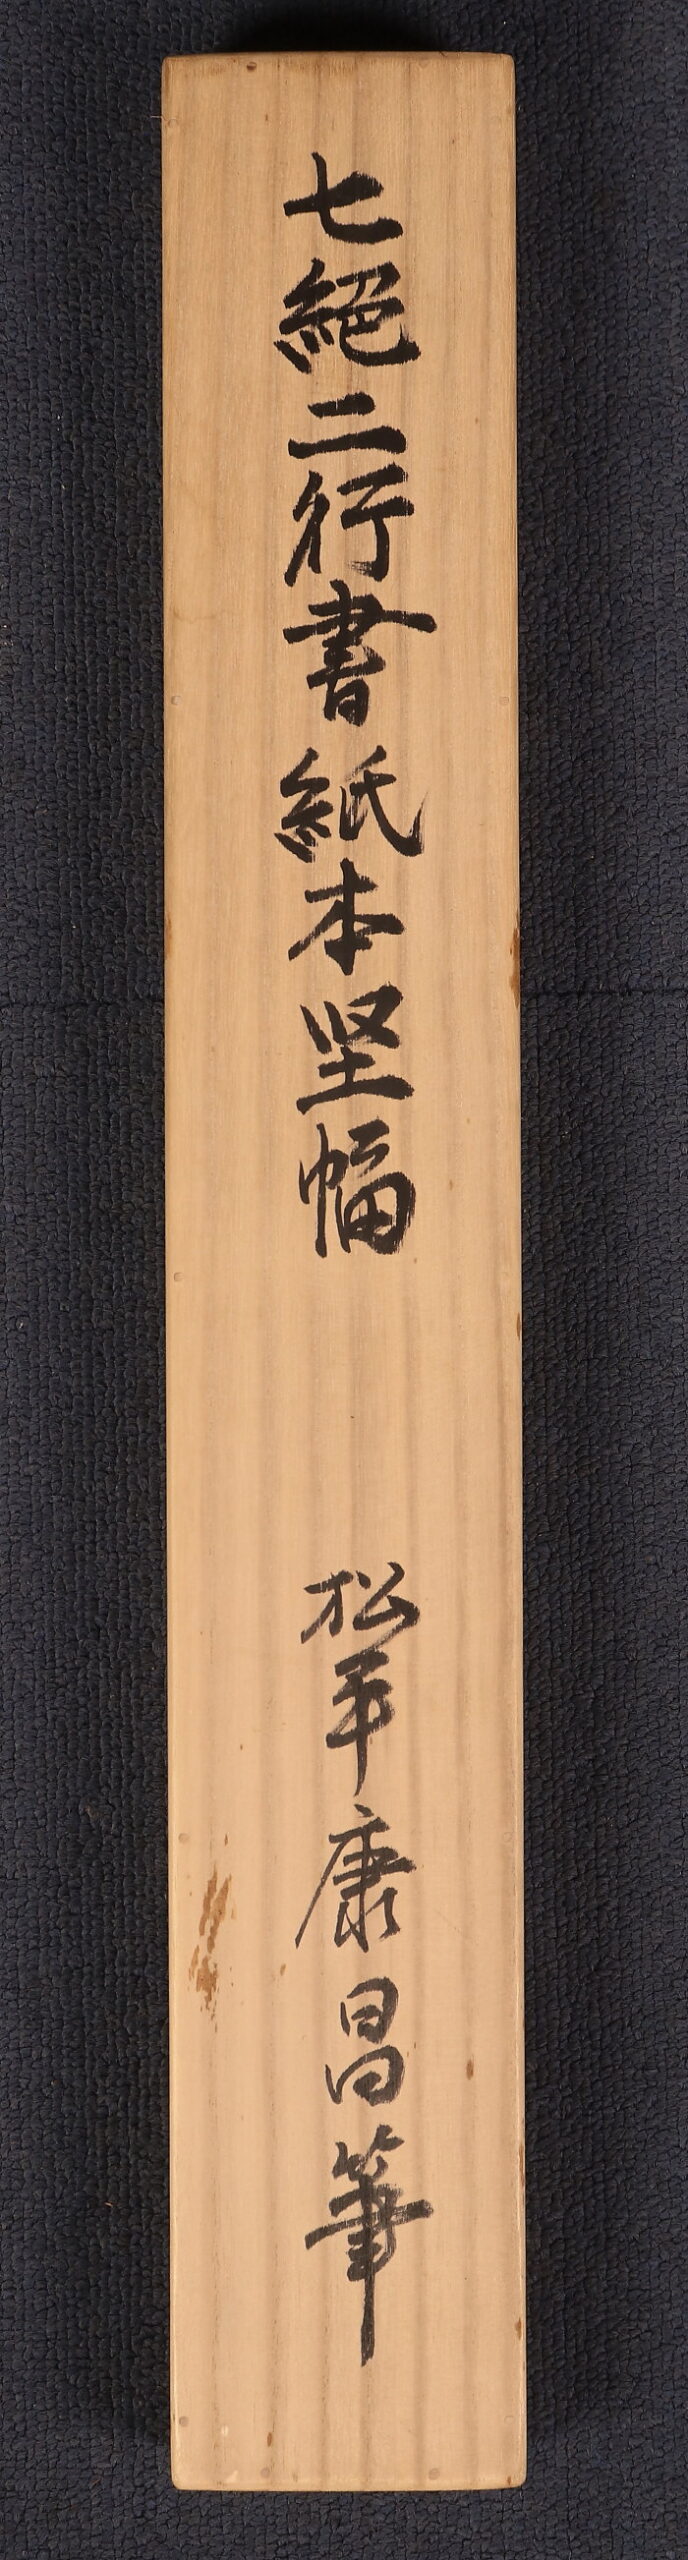 七絕二行書紙本竪幅
松平康昌筆